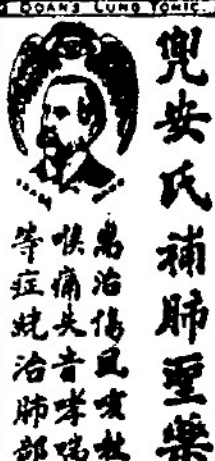 DOANS LUNG TONIC
兜安氏補肺聖藥
專治傷風咳
喉痛失音哮喘
等症統治肺部